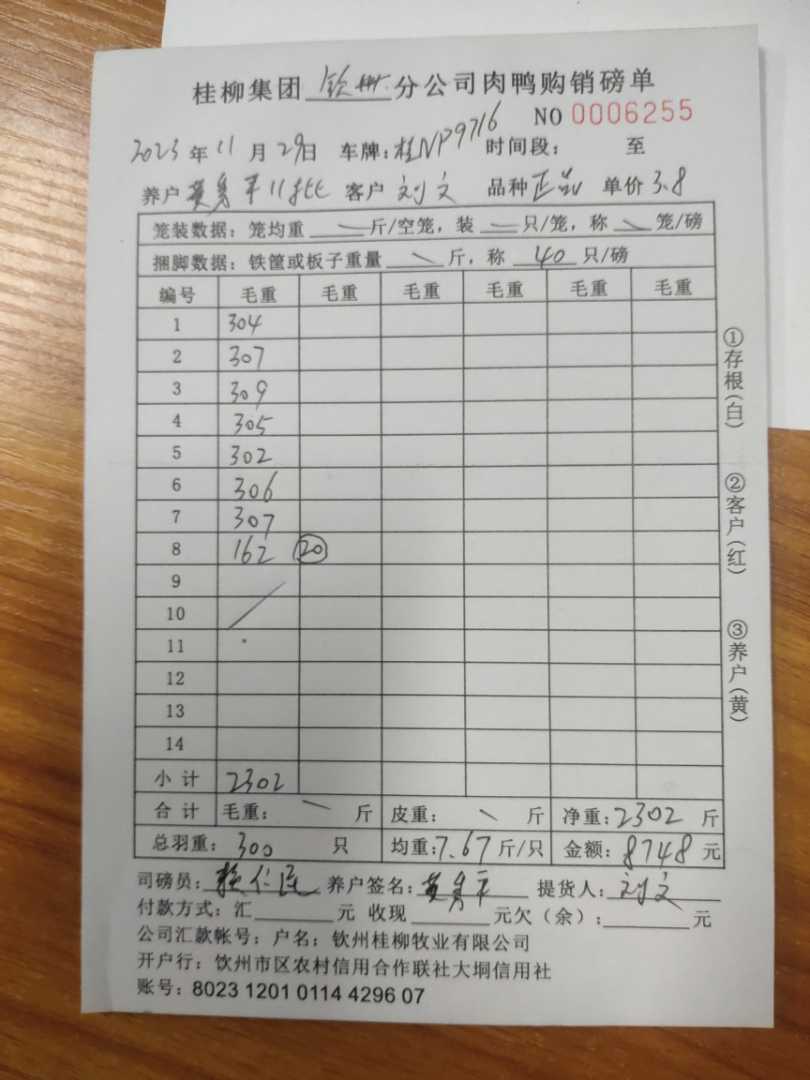 桂柳集团 钦州 分公司肉鸭购销磅单
NO 0006255
2023年11月29日 车牌：桂NP9716 时间段： 至
养户 黄勇平11批 客户 刘文 品种 正品 单价 3.8
笼装数据：笼均重 斤/空笼，装 只/笼，称 笼/磅
捆脚数据：铁筐或板子重量 斤，称 40 只/磅
编号 毛重 毛重 毛重 毛重 毛重 毛重
1 304
2 307
3 309
4 305
5 302
6 306
7 307
8 162 20
9
10
11
12
13
14
小计 2302
合计 毛重： 斤 皮重： 斤 净重：2302 斤
总羽重：300 只 均重：7.67斤/只 金额：8748元
司磅员： 养户签名：黄勇平 提货人：刘文
付款方式：汇 元 收现 元欠（余）： 元
公司汇款帐号：户名：钦州桂柳牧业有限公司
开户行：饮州市区农村信用合作联社大垌信用社
账号：8023 1201 0114 4296 07
①存根（白）
②客户（红）
③养户（黄）